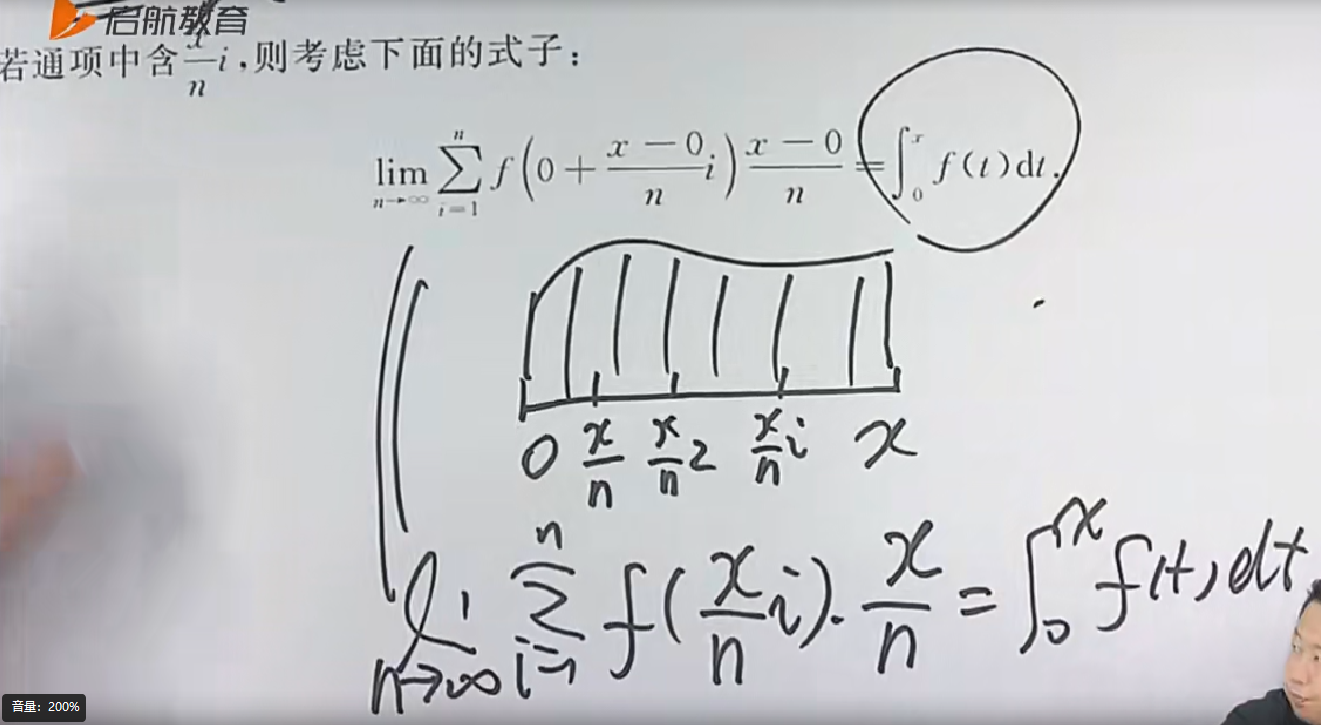 启航教育
若通项中含\frac{x}{n}i,则考虑下面的式子:
\lim_{n→∞} \sum_{i=1}^{n} f(0+\frac{x-0}{n}i)\frac{x-0}{n}=\int_{0}^{x} f(t)dt.
0 \frac{x}{n} \frac{x}{n}2 \frac{x}{n}i x
\lim_{n→∞} \sum_{i=1}^{n} f(\frac{x}{n}i)·\frac{x}{n}=\int_{0}^{x} f(t)dt
音量:200%